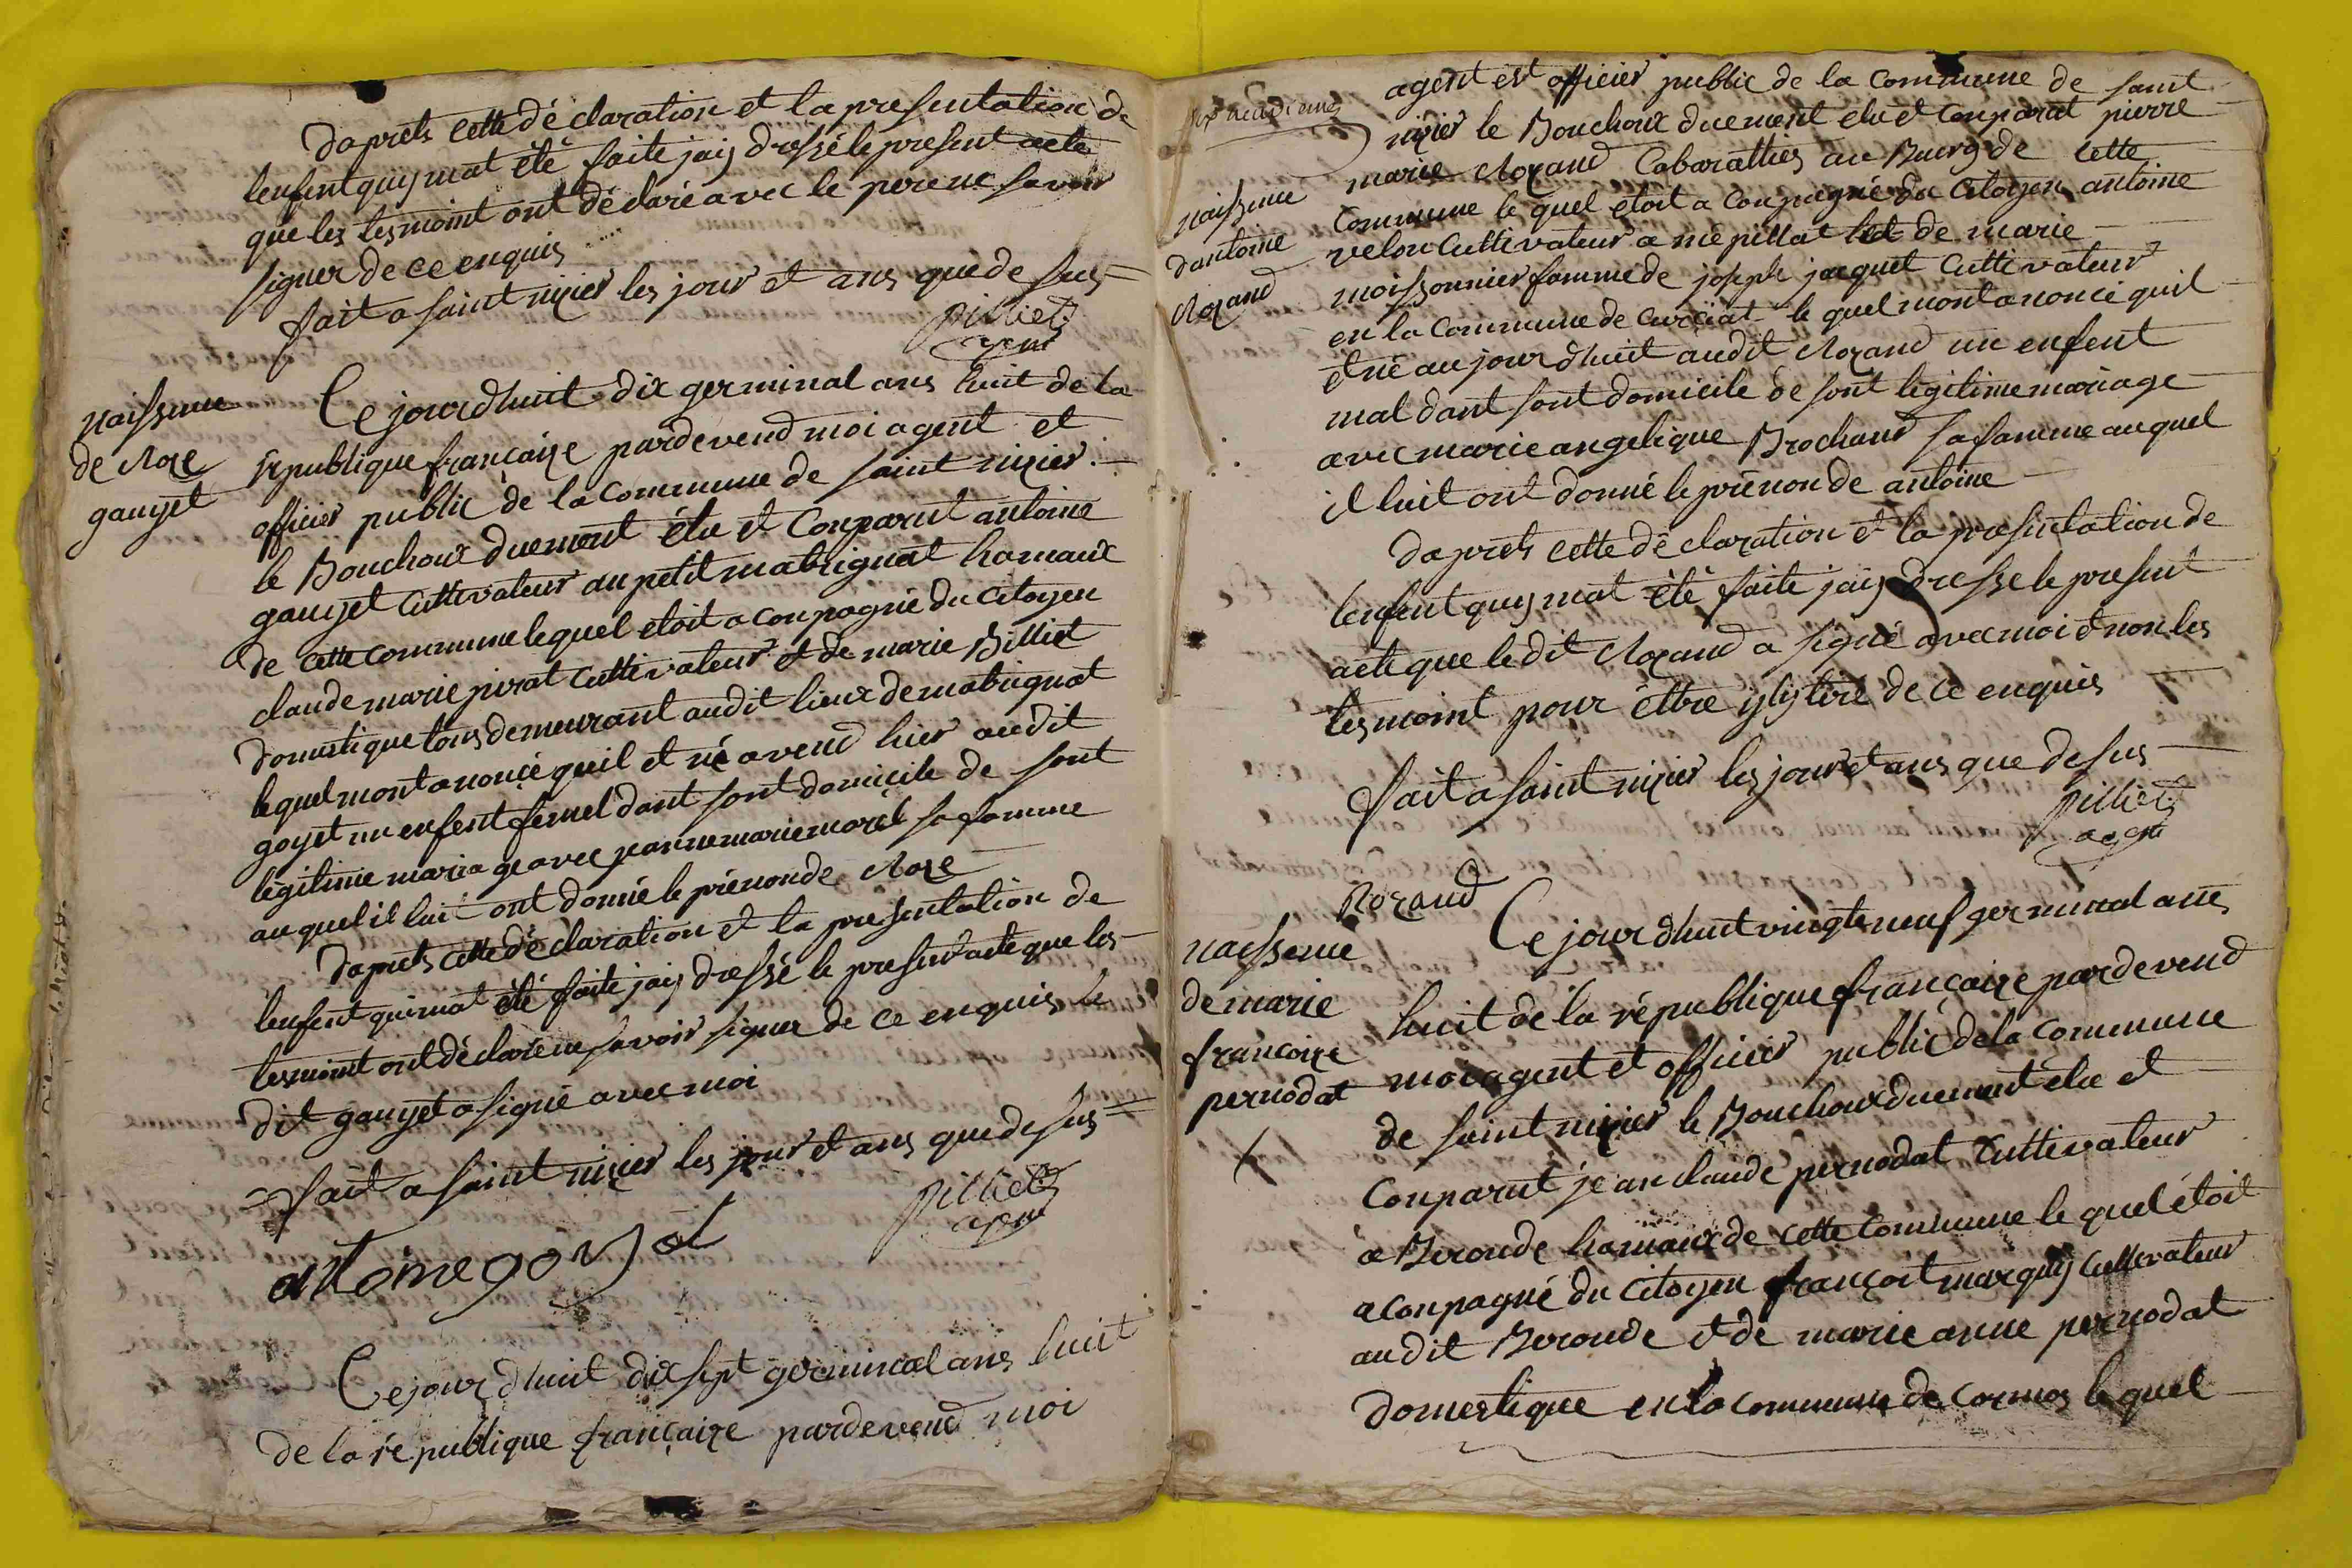 Daprets cette déclaration et la presentation de
lenfent quy mat été faite jaiy dressé le present acte
que les tesmoint ont déclaré avec le pere ne savoir
signer de ce enquis
fait a saint nizier les jour et ans que de sus
pilliet
agent
naissence
de Roze
gauyet
Ce jourdhuit dix germinal ans huit de la
republique françaize pardevend moi agent et
officier public de la commune de saint nizier
le Bouchoux duement élu et Conparut antoine
gauyet cultivateur au petit matrignat hamaux
de cette commune lequel etoit a conpagné du Citoyen
claude marie pirat cultivateur et de marie Billiet
Domestique tous demeurant audit lieux de matrignat
lequel mont anoncé quil et né avend hier audit
goyet un enfent femel dant sont domicile de sont
legitime mariage avec jeanne marie morel sa famme
auquel il luit ont donné le prénon de Roze
Daprets cette déclaration et la presentation de
lenfent qui mat été faite jaiy dressé le present acte que les
tesmoint ont déclaré ne savoir signer de ce enquis le
dit gauyet a signé avec moi
fait a saint nizier les jour et ans que de sus
pilliet
agent
antoine goyat
Ce jourdhuit dix sept germinal ans huit
de la république françaize pardevend moi
agent est officier public de la commune de saint
nizier le Bouchoux duement elu et Conparut pierre
naissence
dantoine
Rozand
marie Rozand Cabarattier au Bourg de cette
Commune le quel etoit a Conpagné du Citoyen antoine
velon Cultivateur a mépillat et de marie
moissonnier famme de joseph jacquet Cultivateur
en la Commune de curciat le quel mont anoncé quil
et né aujourdhuit audit Rozand un enfent
mal dant sont domicile de sont légitime mariage
avec marie angelique Brochand sa famme auquel
il luit ont donné le prénon de antoine
Daprets cette déclaration et la presentation de
lenfent quy mat été faite jaiy dresse le present
acte que le dit Rozand a signé avec moi et non les
tesmoint pour éttre ylytéré de ce enquis
fait a saint nizier les jour et ans que de sus
pilliet
agent
Rozand
naissence
de marie
francoize
pernodat
Ce jourdhuit vingte neuf germinal ans
huit de la république françaize pardevend
moi agent et officier public de la commune
de saint nizier le Bouchoux duement élu et
Conparut jean claude pernodat Cultivateur
a Beronde hamaux de cette Commune le quel étoit
a conpagné du Citoyen françoit marquiy Cultivateur
audit Beronde et de marie anne pernodat
Domestique en la commune de cormos lequel